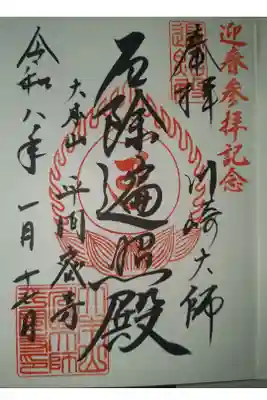 迎春参拝記念
奉拝
川崎大師
厄除遍照殿
大本山
平間寺
令和八年一月十七日